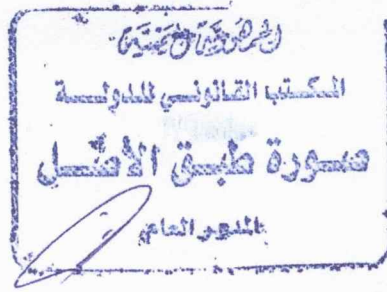 المكتب القانوني للدولة
صورة طبق الأصل
المدير العام